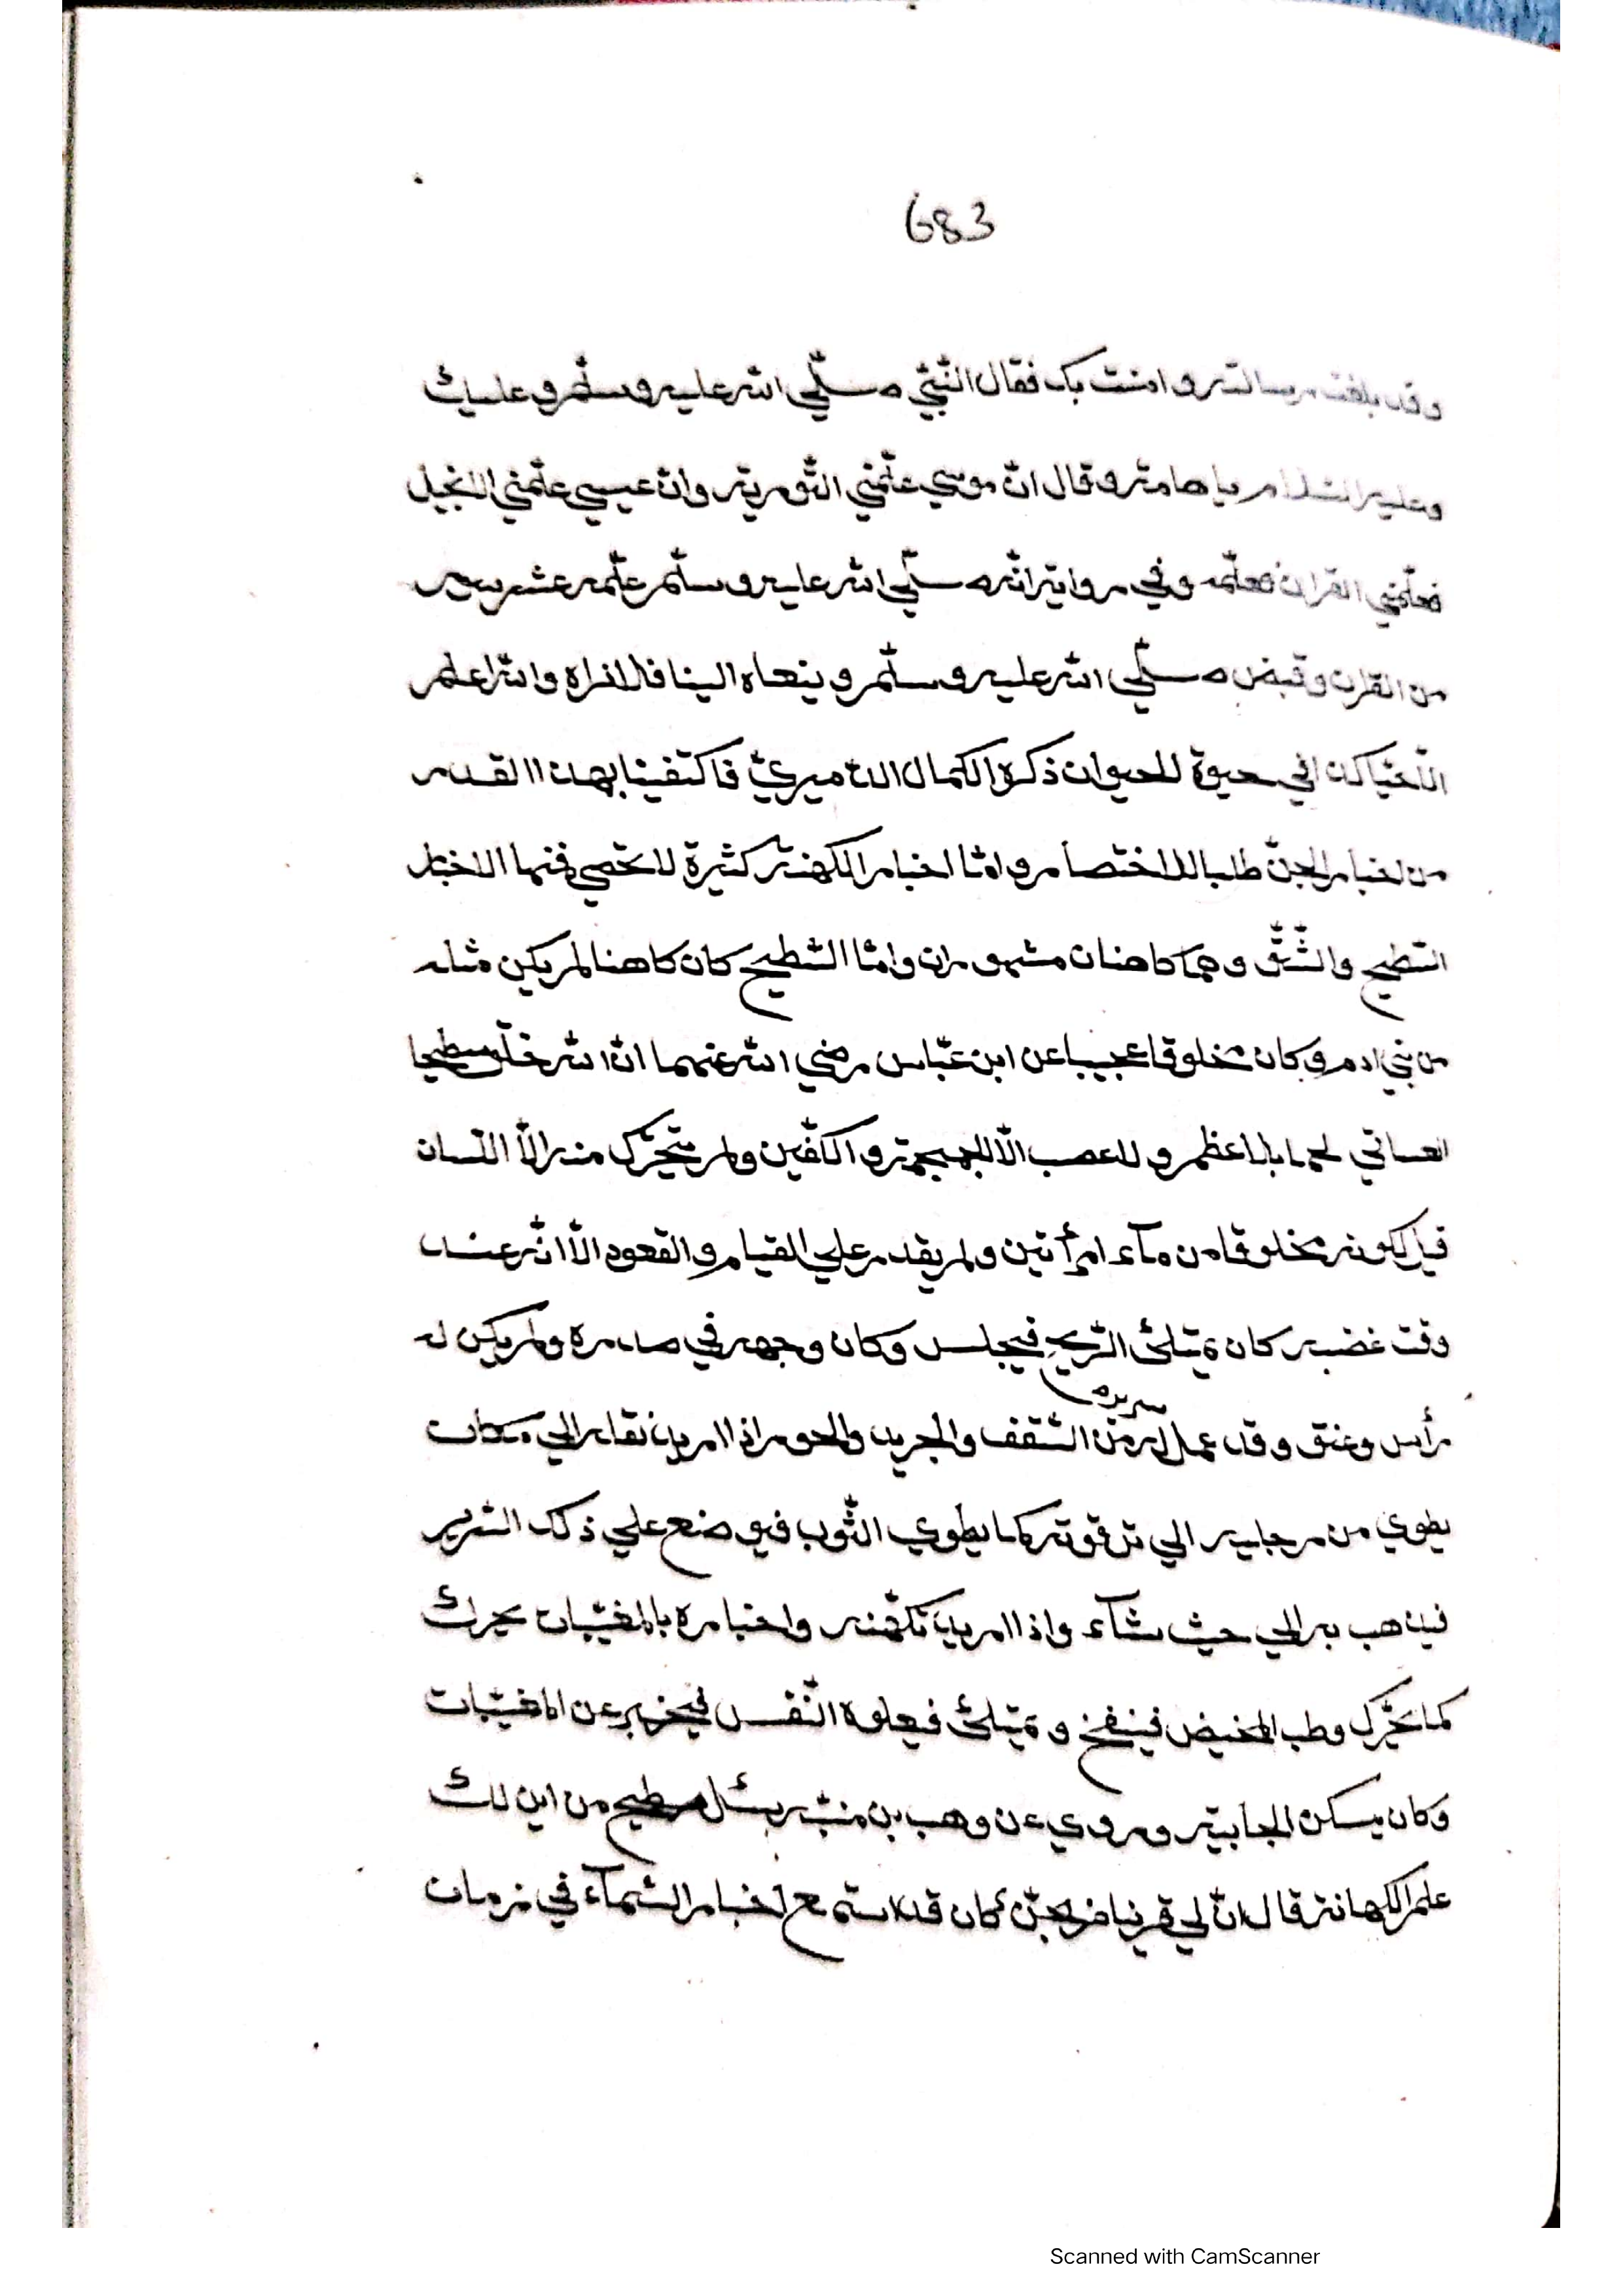 683
وقد بلغت رسالته وامنت بك فقال النّبيّ صلّي الله عليه وسلّم وعليك
وعليه السّلام ياهامة وقال انّ موسي علّمني التّورية وانّ عيسي علّمني الانجيل
فعلّمني القران فعلّمه وفي رواية انّه صلّي الله عليه وسلّم علّمه عشر سور
من القران وقبض صلّي الله عليه وسلّم و ينعاه الينا فلا نراه والله اعلم
في حيوة الحيوان ذكره الكمال الدّميريّ فاكتفينا بهذا القدر
من اخبار الجنّ طلبا للاختصار وامّا اخبار الكهنة كثيرة لا تحصي فمنها الاخبار
السّطيح والشّقّ وهما كاهنان مشهوران وامّا السّطيح كان كاهنا لم يكن مثله
من بني ادم وكان مخلوقا عجيبا عن ابن عبّاس رضي الله عنهما انّ الله خلق سطيحا
الغساني لحما بلا عظم ولا عصب الّا الجمجمة والكفّين ولم يتحرّك منه الّا اللّسان
قيل لكونه مخلوقا من مآء امرأتين ولم يقدر علي القيام والقعود الّا انّه عند
وقت غضبه كان يمتلئ الرّيح فيجلس وكان وجهه في صدره ولم يكن له
رأس وعنق وقد عمل له سريره من السّقف والجريد والحوم اذا اريد نقله الي مكان
يطوي من رجليه الي ترقوته كما يطوي الثّوب فيوضع علي ذلك السّرير
فيذهب به الي حيث شآء واذا اريد تكهّنه واخباره بالمغيّبات يحرك
كما يحرّك وطب المخيض فينفخ و يمتلئ فيعلوه النّفس فيخبر عن المغيّبات
وكان يسكن الجابية وروي عن وهب بن منبّه سئل سطيح من اين لك
علم الكهانة قال انّ لي قرينا من الجنّ كان قد استمع اخبار السّمآء في زمان
Scanned with CamScanner